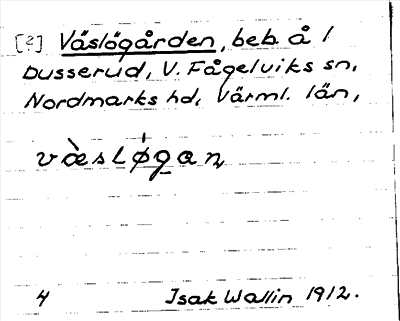 [?] Väslögården, beb. å 1
Dusserud, V. Fågelviks sn,
Nordmarks hd, Värml. län,
vœ̀sløgan
4 Isak Wallin 1912.